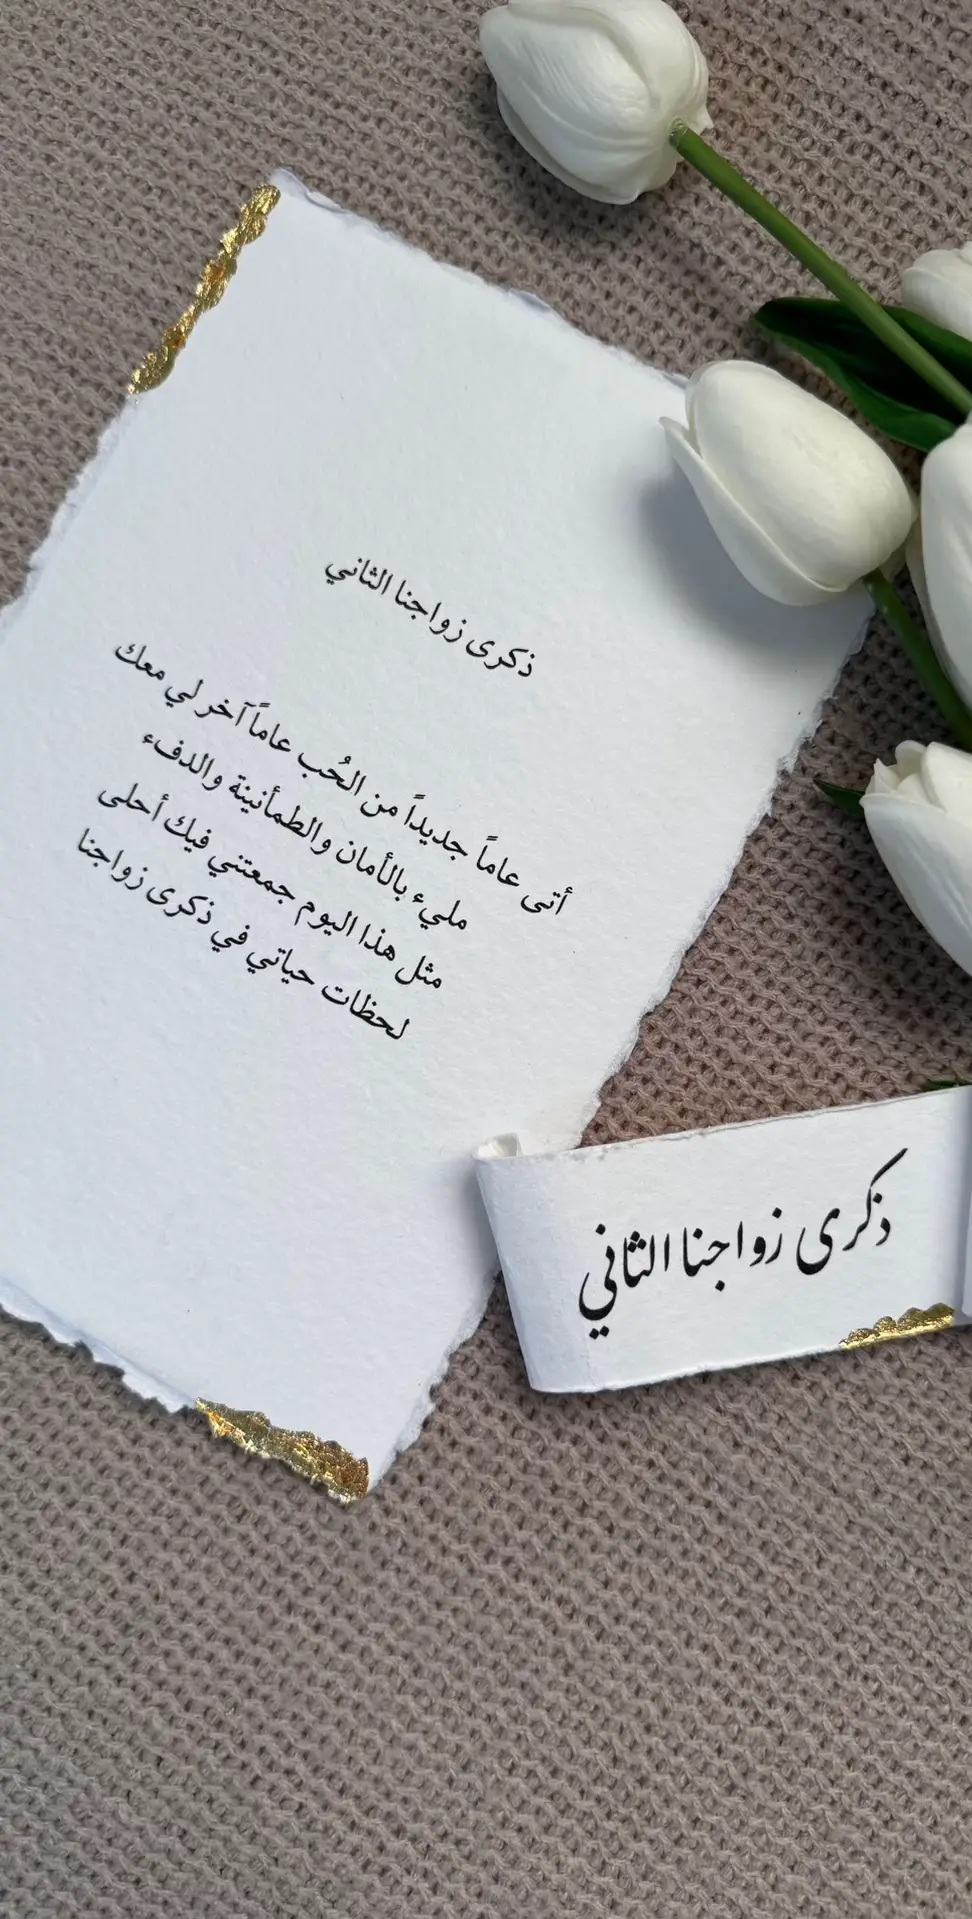 ذكرى زواجنا الثاني
أتى عاماً جديداً من الحُب عاماً آخر لي معك
مليء بالأمان والطمأنينة والدفء
مثل هذا اليوم جمعتني فيك أحلى
لحظات حياتي في ذكرى زواجنا
ذكرى زواجنا الثاني